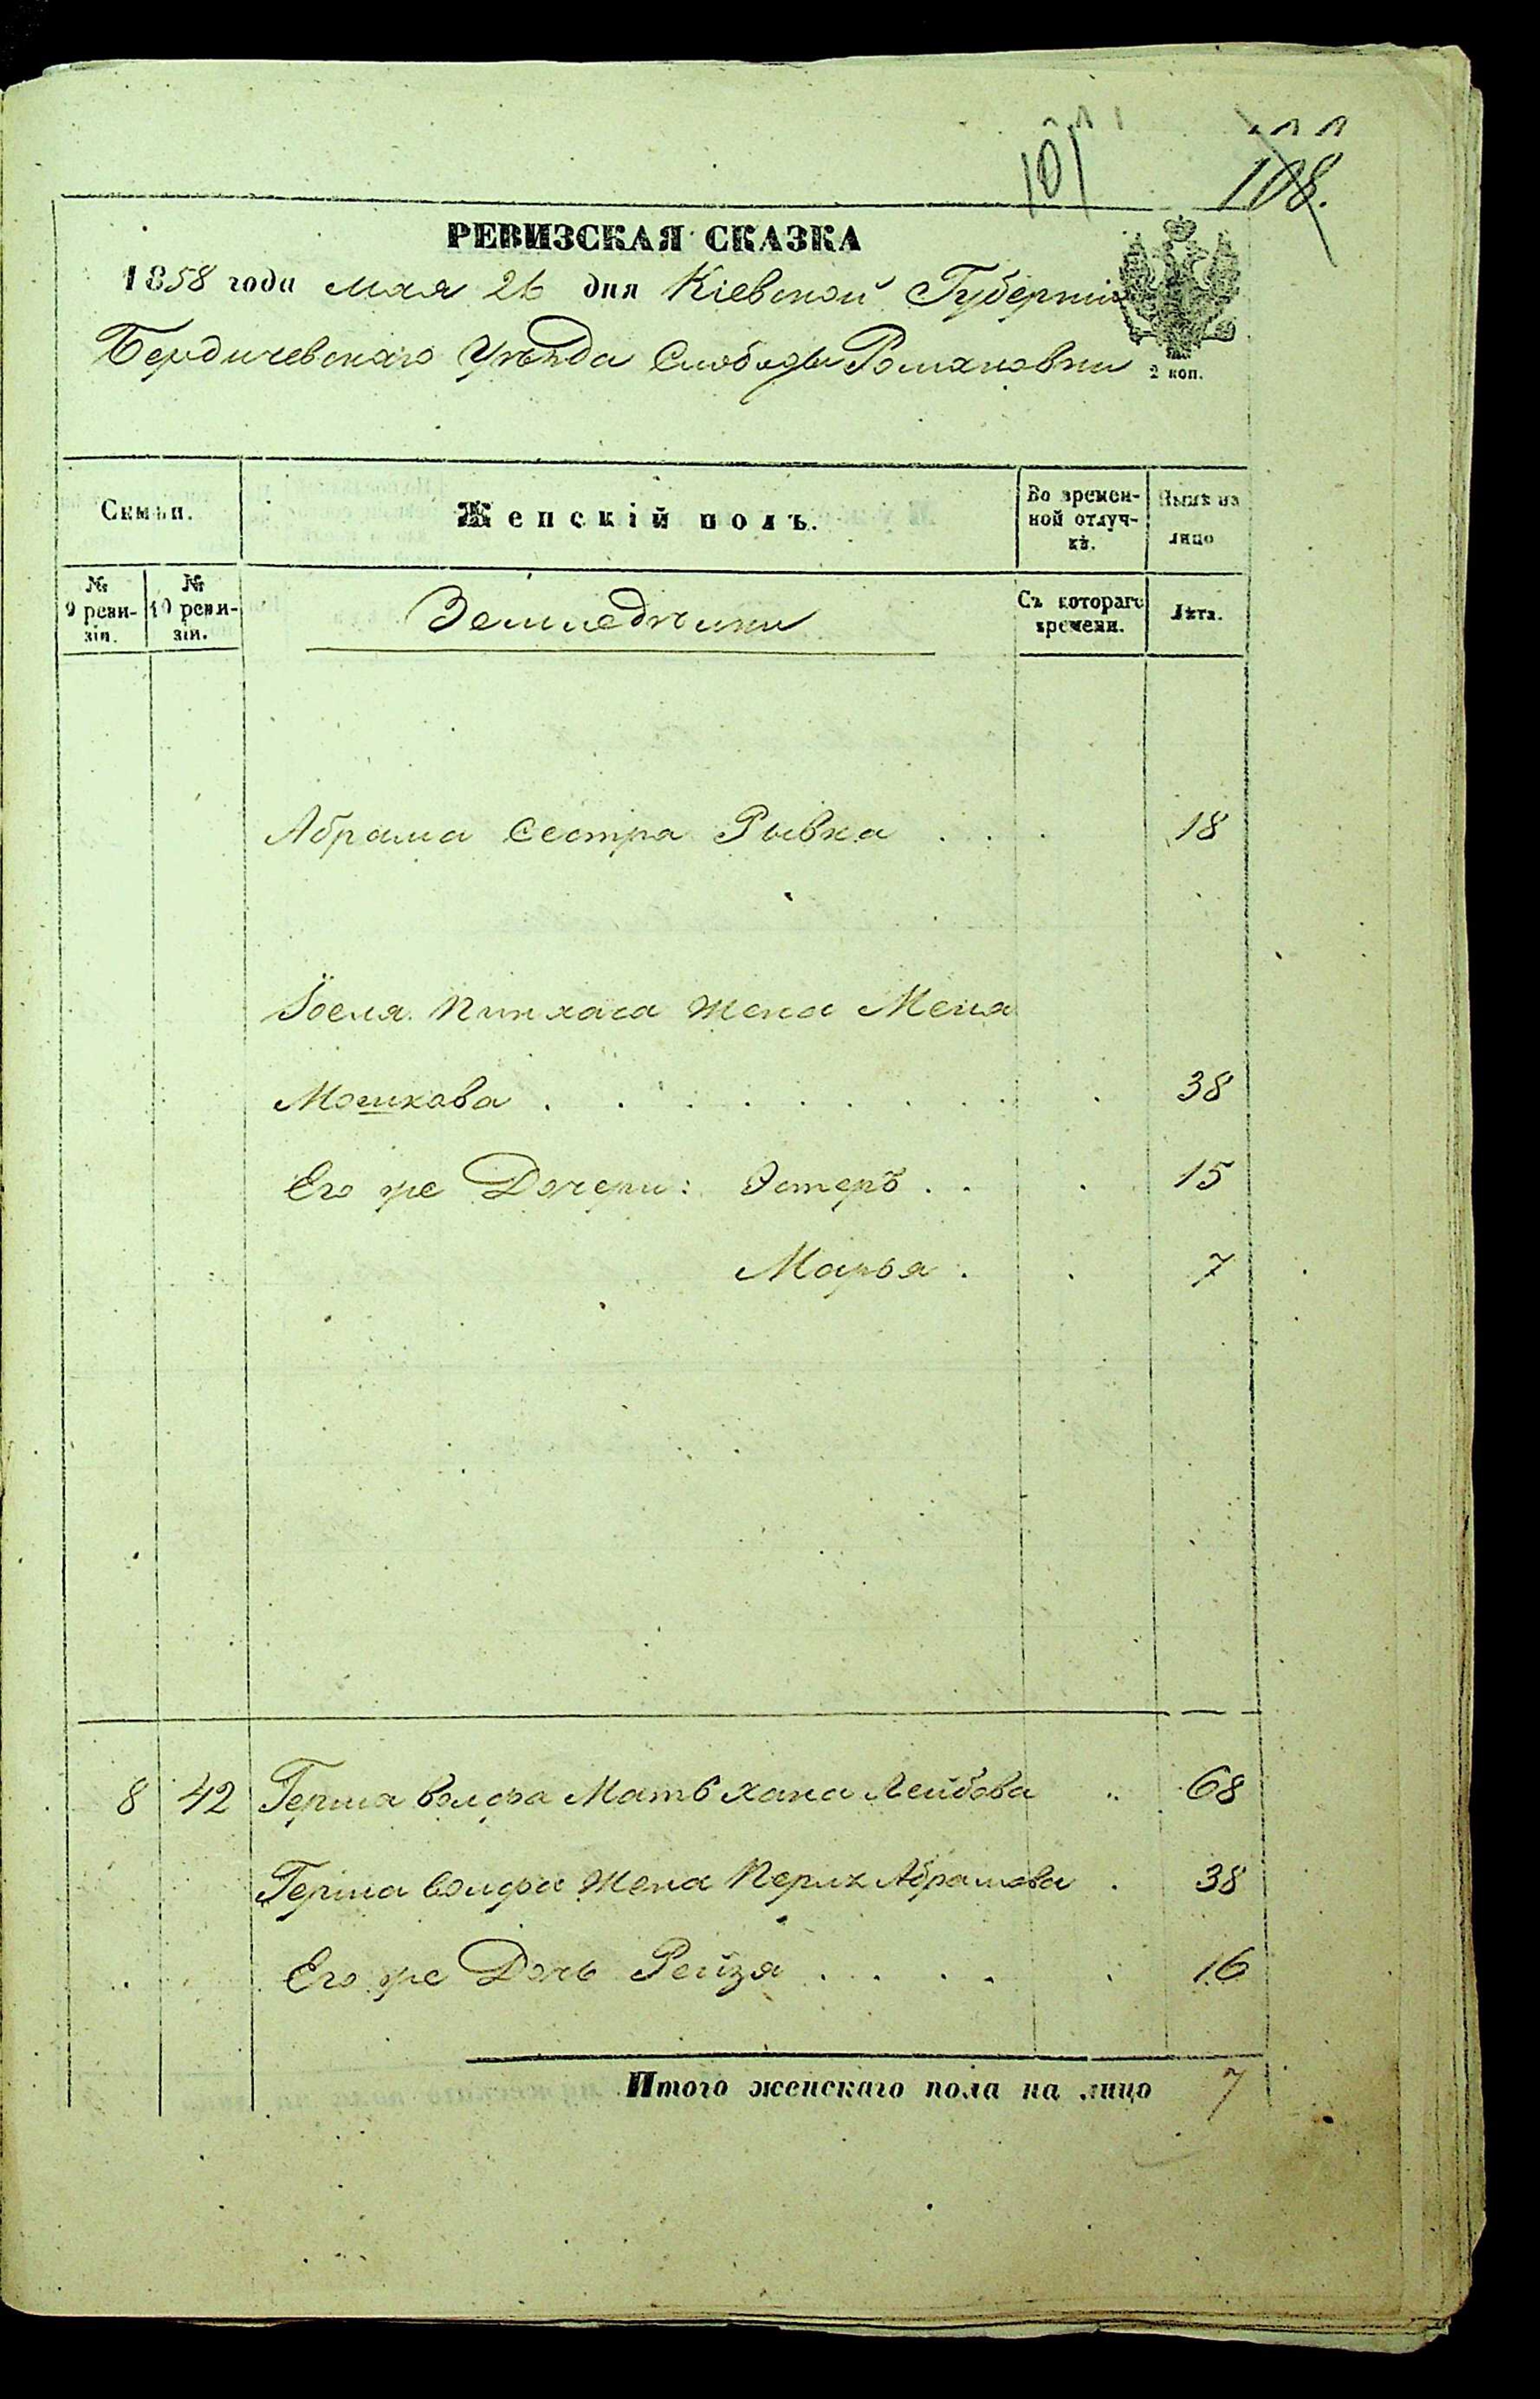 101 108.
РЕВИЗСКАЯ СКАЗКА
1858 года мая 26 дня Кіевской Губерніи
Бердичевскаго Уѣзда Слободы Романовки
2 коп.
Семьи.
Женскій полъ.
Во времен-
ной отлуч-
кѣ.
Нынѣ на
лицо
№
9 реви-
зіи.
№
10 реви-
зіи.
Земледѣльцы
Съ котораго
времени.
Лѣта.
Абрама сестра Рывка . . . 18
Іоеля Пинхаса жена Меня
Мошкова . . . . . . . . . 38
Его же Дочери: Эстеръ . . . 15
Марья . . 7
8 42 Герша Волфа Мать Хана Лейбова .. 68
Герша Волфа Жена Перля Абрамова . 38
Его же Дочь Рейзя . . . . . 16
Итого женскаго пола на лицо 7